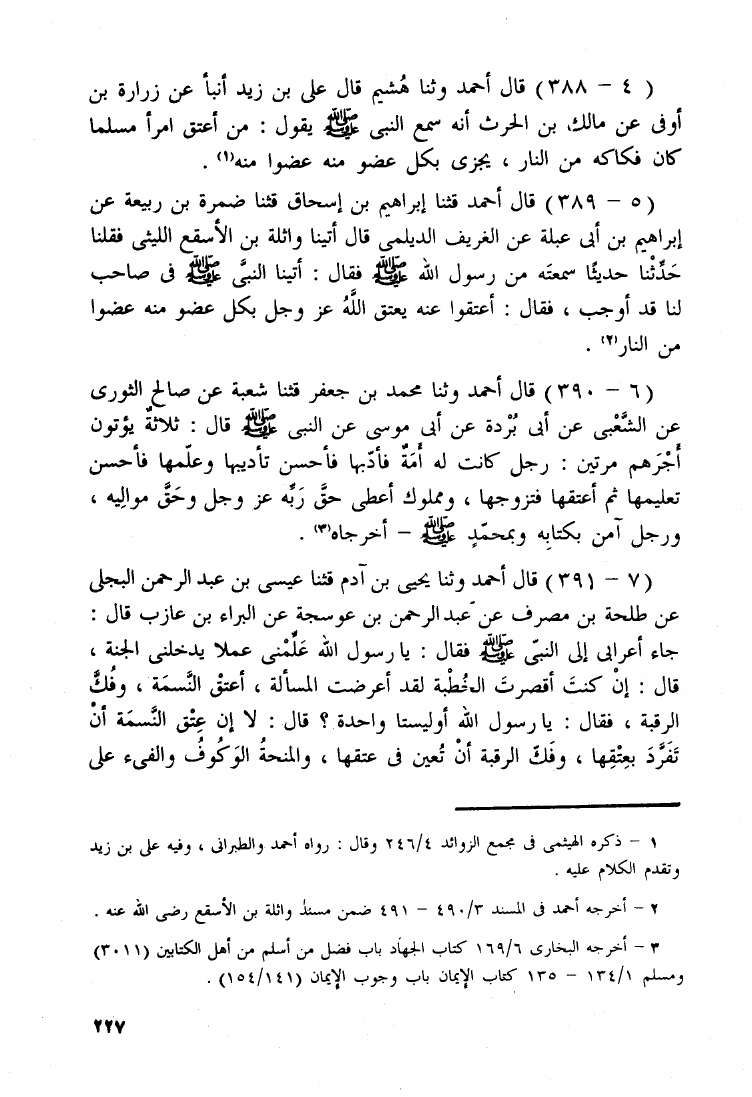 ( ٤ – ٣٨٨ ) قال أحمد وثنا هُشيم قال على بن زيد أنبأ عن زرارة بن
أوفى عن مالك بن الحرث أنه سمع النبى ﷺ يقول : من أعتق امرأ مسلما
كان فكاكه من النار ، يجزى بكل عضو منه عضوا منه(١) .
( ٥ – ٣٨٩ ) قال أحمد قثنا إبراهيم بن إسحاق قثنا ضمرة بن ربيعة عن
إبراهيم بن أبى عبلة عن الغريف الديلمى قال أتينا واثلة بن الأسقع الليثى فقلنا
حَدِّثْنا حديثًا سمعتَه من رسول الله ﷺ فقال : أتينا النبىَّ ﷺ فى صاحب
لنا قد أوجب ، فقال : أعتقوا عنه يعتق اللَّهُ عز وجل بكل عضو منه عضوا
من النار(٢) .
( ٦ – ٣٩٠ ) قال أحمد وثنا محمد بن جعفر قثنا شعبة عن صالح الثورى
عن الشَّعْبى عن أبى بُرْدة عن أبى موسى عن النبى ﷺ قال : ثلاثةٌ يؤتون
أَجْرَهم مرتين : رجل كانت له أَمَةٌ فأدّبها فأحسن تأديبها وعلّمها فأحسن
تعليمها ثم أعتقها فتزوجها ، ومملوك أعطى حقَّ رَبِّه عز وجل وحَقَّ مواليه ،
ورجل آمن بكتابِه وبمحمّدٍ ﷺ – أخرجاه(٣) .
( ٧ – ٣٩١ ) قال أحمد وثنا يحيى بن آدم قثنا عيسى بن عبد الرحمن البجلى
عن طلحة بن مصرف عن عبد الرحمن بن عوسجة عن البراء بن عازب قال :
جاء أعرابى إلى النبىّ ﷺ فقال : يا رسول الله عَلِّمْنى عملا يدخلنى الجنة ،
قال : إنْ كنتَ أقصرتَ الخُطْبة لقد أعرضت المسألة ، أعتقْ النَّسمَة ، وفُكَّ
الرقبة ، فقال : يا رسول الله أوليستا واحدة ؟ قال : لا إن عِتْق النَّسمَة أنْ
تَفَرَّدَ بعِتْقِها ، وفَكّ الرقبة أنْ تُعين فى عتقها ، والمنحةُ الوَكُوفُ والفىء على
١ – ذكره الهيثمى فى مجمع الزوائد ٢٤٦/٤ وقال : رواه أحمد والطبرانى ، وفيه على بن زيد
وتقدم الكلام عليه .
٢ – أخرجه أحمد فى المسند ٤٩٠/٣ – ٤٩١ ضمن مسند واثلة بن الأسقع رضى الله عنه .
٣ – أخرجه البخارى ١٦٩/٦ كتاب الجهاد باب فضل من أسلم من أهل الكتابين (٣٠١١)
ومسلم ١٣٤/١ – ١٣٥ كتاب الإيمان باب وجوب الإيمان (١٥٤/١٤١) .
٢٢٧